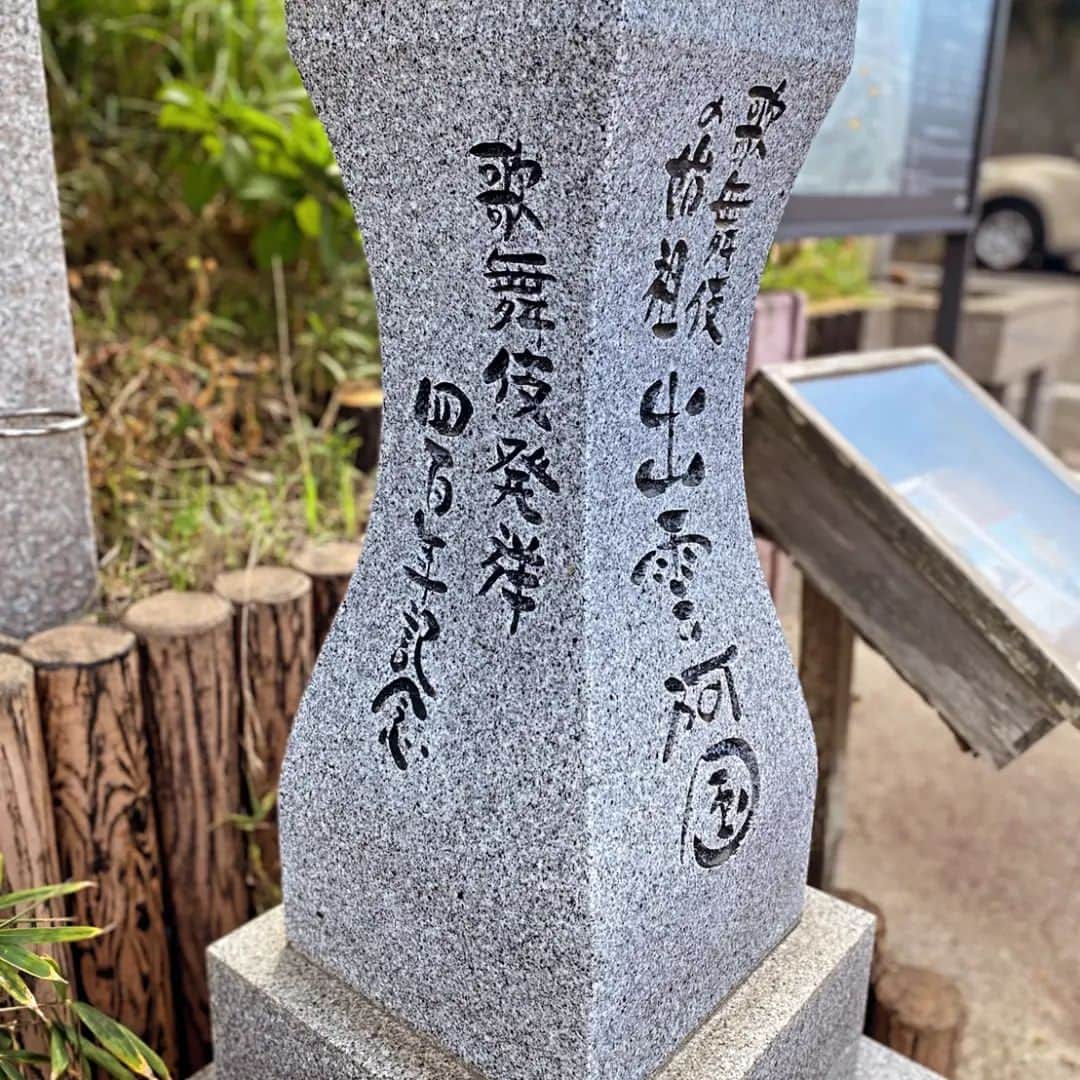 歌舞伎
の始祖
出雲阿国
歌舞伎発祥
四百年記念